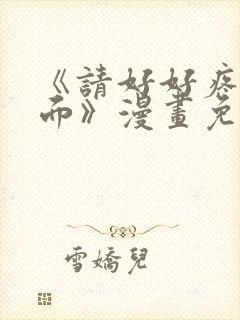 《請好好疼
而》漫畫免
雪嬌兒